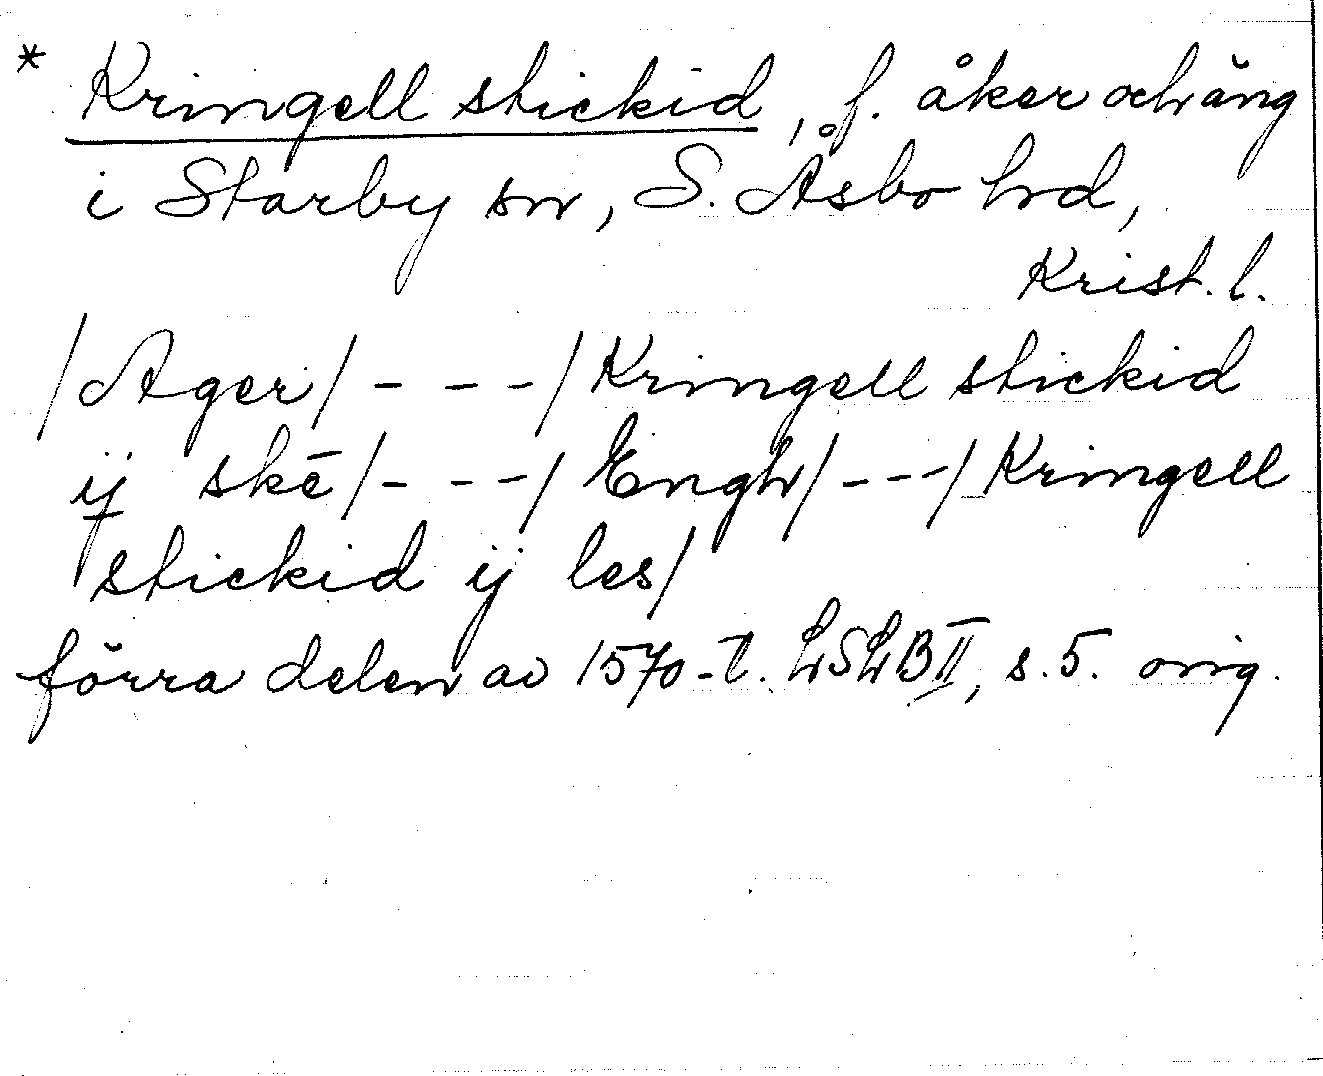 * Kringell stickid, f. åker och äng
i Starby sn, S. Åsbo hd,
Krist. l.
/Ager/ - - - /Kringell stickid
ij skē/- - -/ Engh/---/Kringell
stickid ij les/
förra delen av 1570-t. LSLB II, s. 5. orig.